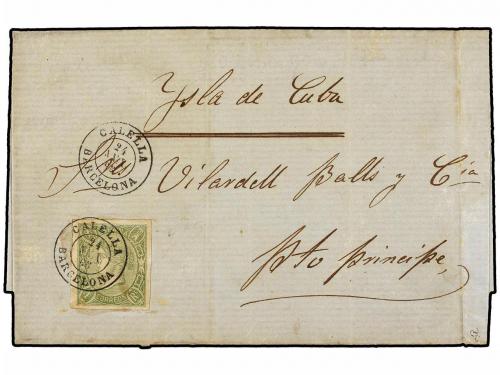 Ysla de Cuba
CALELLA
24
BARCELONA
Vilardell Balls y Cia
Pto Principe,
CALELLA
24
BARCELONA
CORREOS